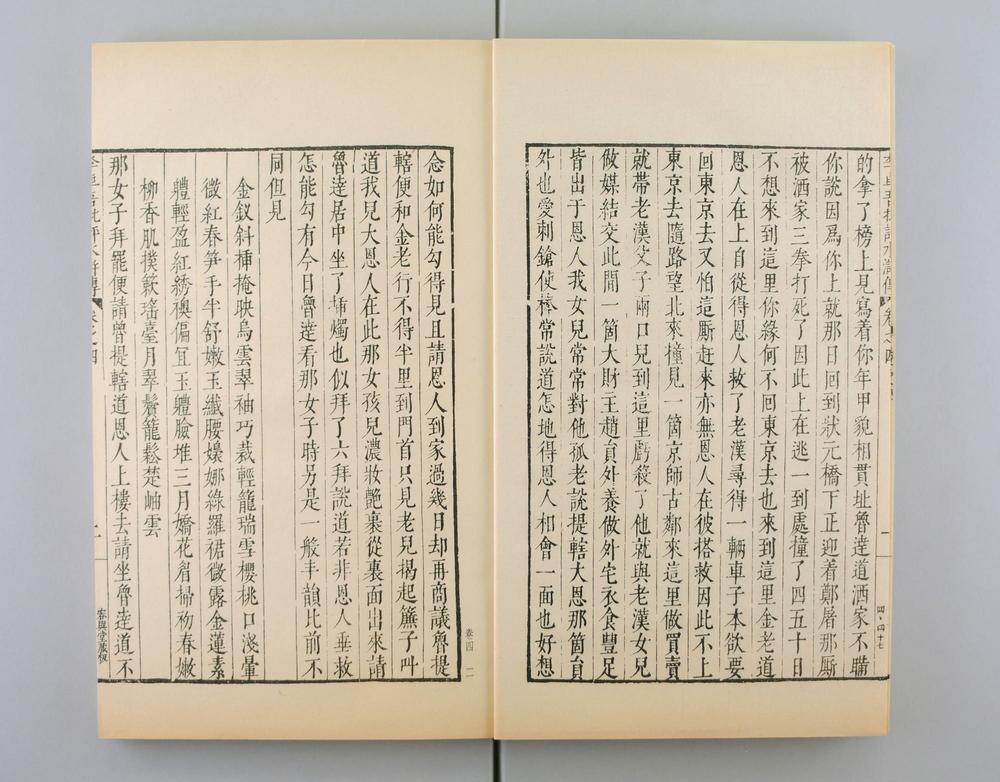 的拿了榜上見寫着你年甲貌相貫址魯達道洒家不瞞
你說因爲你上就那日回到狀元橋下正迎着鄭屠那厮
被洒家三拳打死了因此上在逃一到處撞了四五十日
不想來到這里你緣何不回東京去也來到這里金老道
恩人在上自從得恩人救了老漢尋得一輛車子本欲要
回東京去又怕這厮赶來亦無恩人在彼搭救因此不上
東京去隨路望北來撞見一箇京師古鄰來這里做買賣
就帶老漢父子兩口兒到這里虧殺了他就與老漢女兒
做媒結交此間一箇大財主趙員外養做外宅衣食豐足
皆出于恩人我女兒常常對他孤老說提轄大恩那箇員
外也愛刺鎗使棒常說道怎地得恩人相會一面也好想
四·四十七
卷四 二
念如何能勾得見且請恩人到家過幾日却再商議魯提
轄便和金老行不得半里到門首只見老兒揭起簾子呌
道我兒大恩人在此那女孩兒濃妝艶裹從裏面出來請
魯達居中坐了揷燭也似拜了六拜說道若非恩人垂救
怎能勾有今日魯達看那女子時另是一般丰韻比前不
同但見
金釵斜揷掩映烏雲翠袖巧裁輕籠瑞雪櫻桃口淺暈
微紅春笋手半舒嫩玉纖腰嬝娜綠羅裙微露金蓮素
軆輕盈紅綉襖偏宜玉軆臉堆三月嬌花眉掃初春嫩
柳香肌撲簌瑤臺月翠鬢籠鬆楚岫雲
那女子拜罷便請魯提轄道恩人上樓去請坐魯達道不
容與堂藏板